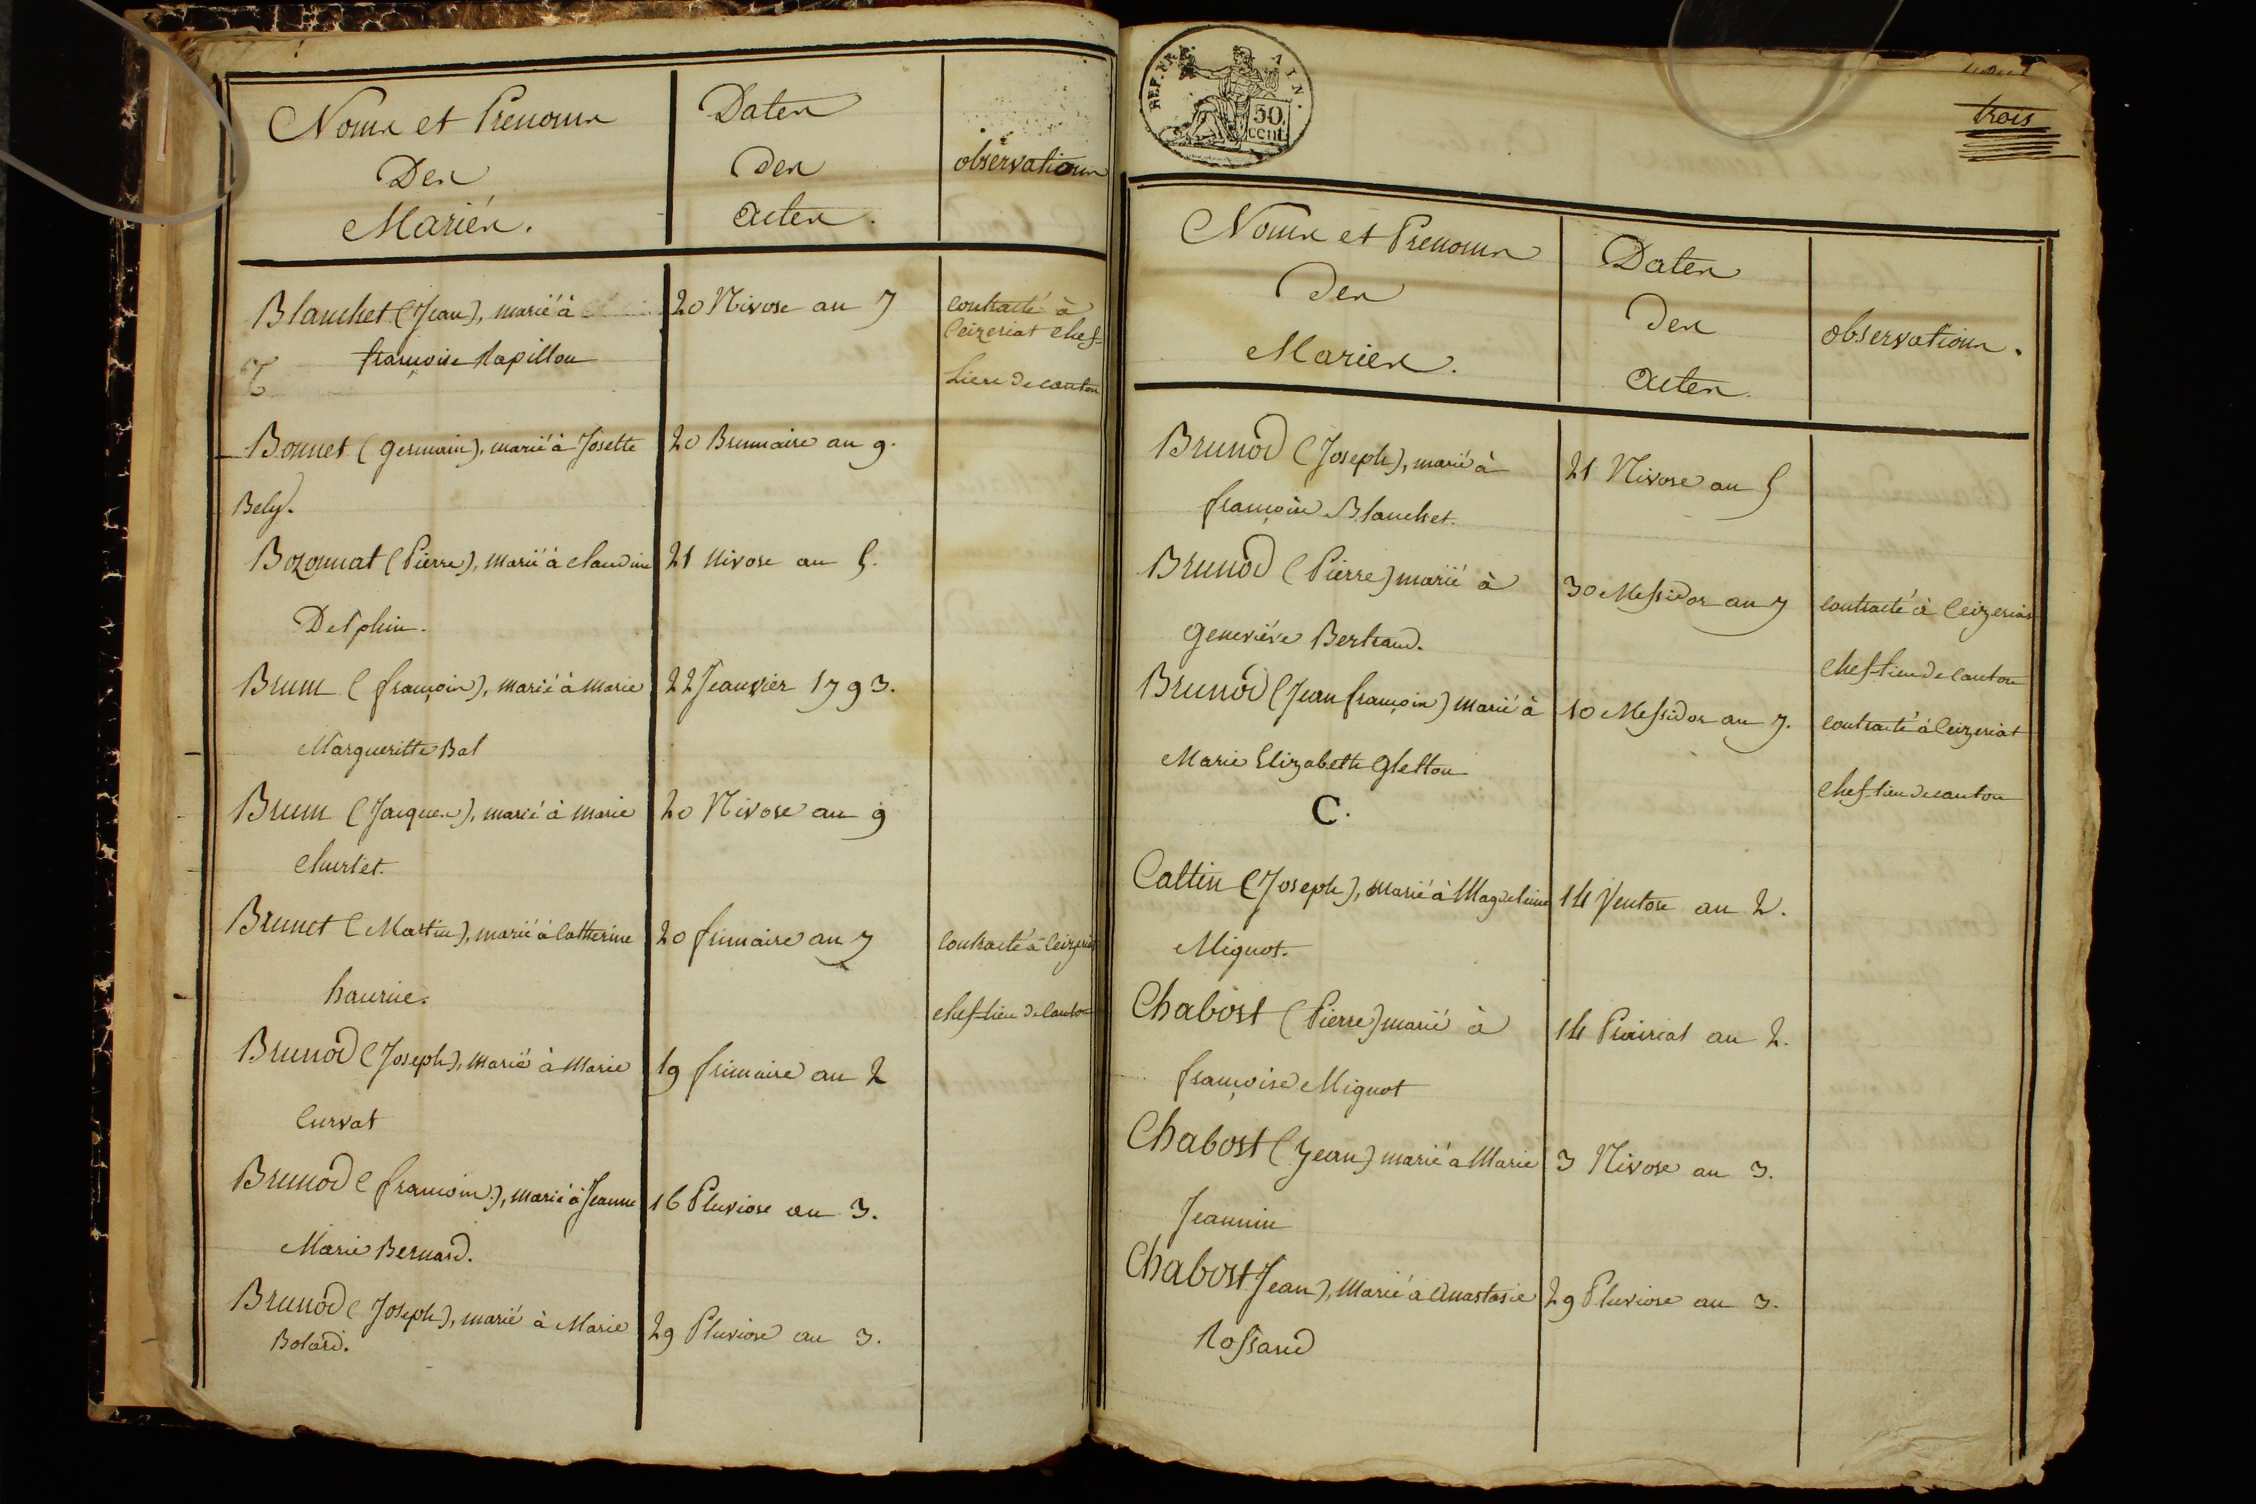 Noms et Prenoms
Des
Mariés.
Dates
des
actes.
observations
Blanchet (Jean), marié à
françoise Rapillon
20 Nivose an 7
contracté à
Ceizeriat chef
Lieu de canton
Bonnet (Germain), marié à Josette
Bely.
20 Brumaire an 9.
Bozonnat (Pierre), marié à Claudine
Delphin.
21 nivose an 5.
Brun (françois), marié à marie
Margueritte Bal
22 Jeanvier 1793.
Brun (Jacques), marié à marie
Churlet.
20 Nivose an 9
Brunet (Martin), marié à Catherine
20 frimaire an 7
contracté à Ceizeriat
chef-lieu de Canton
Brunod (Joseph), marié à Marie
Curvat
19 frimaire an 2
Brunod (françois), marié à Jeanne
Marie Bernard.
16 Pluviose an 3.
Brunod (Joseph), marié à Marie
Bolard.
29 Pluviose an 3.
REP. FRA. AIN.
50
cent.
trois
Noms et Prenoms
des
Mariés.
Dates
des
actes.
observations.
Brunod (Joseph), marié à
françoise Blanchet.
21 Nivose an 5
Brunod (Pierre) marié à
Geneviéve Bertrand.
30 Messidor an 7
contracté à Ceizeriat
chef-lieu de Canton
Brunod (Jean françois) marié à
Marie Elizabeth Gletton
10 Messidor an 7.
contracté à Ceizeriat
chef-lieu de canton
C.
Caltin (Joseph), marié à Magdeleine
Mignot.
14 Ventose an 2.
Chabost (Pierre) marié à
françoise Mignot
14 Prairial an 2.
Chabost (Jean) marié à Marie
Jeannin
3 Nivose an 3.
Chabost Jean), Marié à Anastasie
Rossand
29 Pluviose an 3.